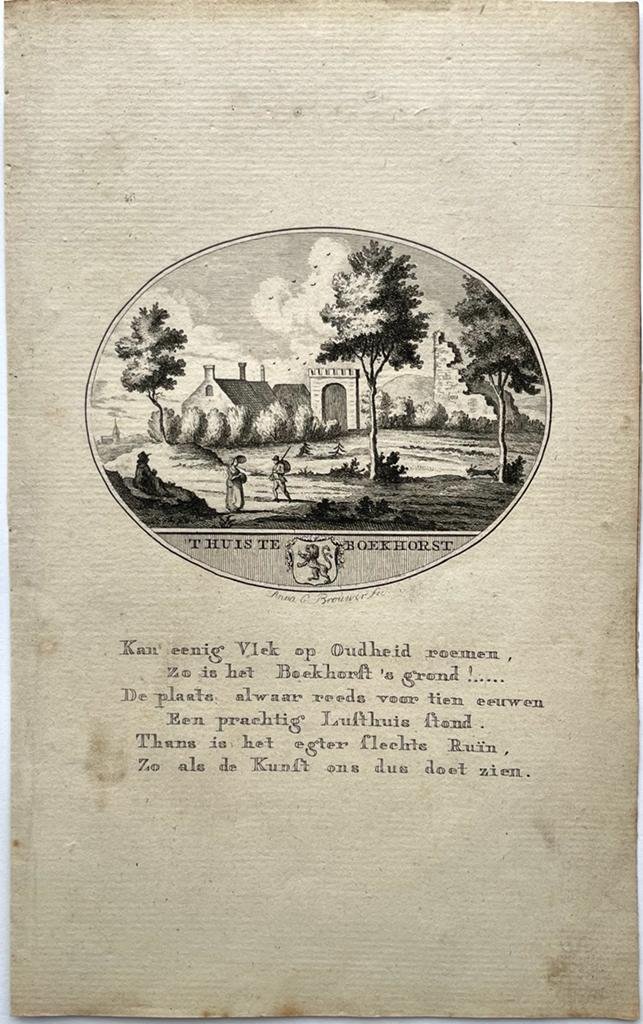 'T HUIS TE BOEKHORST
Anna C Brouwer fec.
Kan eenig Vlek op Oudheid roemen,
Zo is het Boekhorſt 's grond !.....
De plaats alwaar reeds voor tien eeuwen
Een prachtig Luſthuis ſtond.
Thans is het egter ſlechts Ruïn,
Zo als de Kunſt ons dus doet zien.